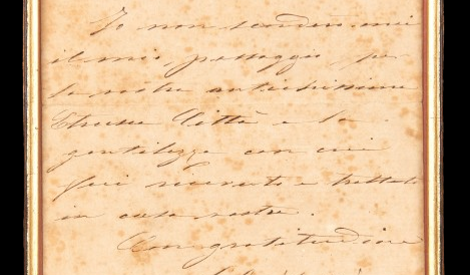 Io non scorderò mai
il mio passaggio per
la vostra antichissima
Etrusca Città e la
gentilezza con cui
fui ricevuto e trattato
in casa vostra.
Con gratitudine